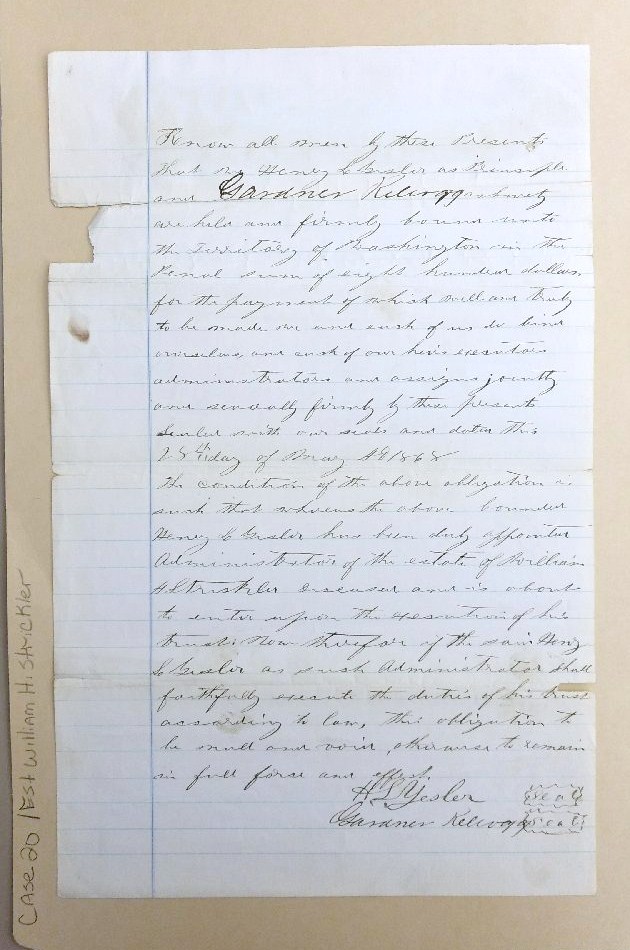 Know all men by these Presents
that we Henry L Yesler as Principle
and Gardner Kellogg as surety
are held and firmly bound unto
the Territory of Washington in the
Penal sum of eight hundred dollars
for the payment of which well and truly
to be made we and each of us do bind
ourselves and each of our heirs executors
administrators and assigns jointly
and severally firmly by these presents
Sealed with our seals and dated this
day of May AD 1868
The condition of the above obligation is
such that whereas the above bounden
Henry L Yesler has been duly appointed
Administrator of the estate of William
H Strickler deceased and is about
to enter upon the execution of his
trust. Now therefore if the said Henry
L Yesler as such Administrator shall
faithfully execute the duties of his trust
according to law, this obligation to
be null and void, otherwise to remain
in full force and effect.
H L Yesler seal
Gardner Kellogg seal
CASE 20 / EST William H. Strickler